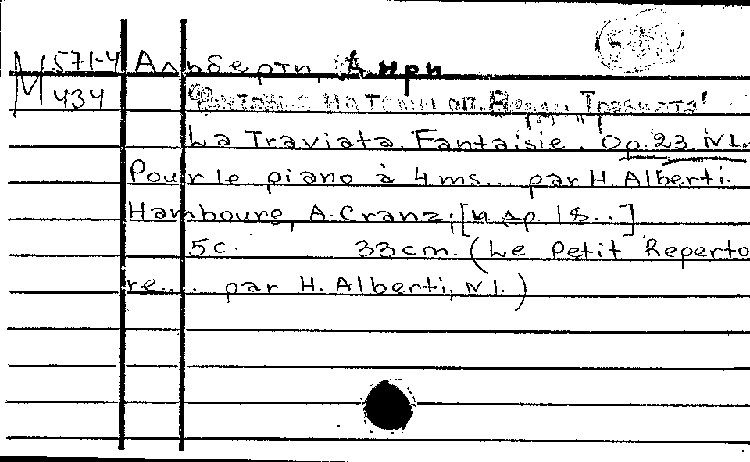 М 571-4 Альберти, Анри
434 Фантазия на темы оп. Верди „Травиата"
La Traviata. Fantaisie. Op. 23. N1.
Pour le piano à 4 ms. par H. Alberti.
Hambourg, A. Cranz, [и др. 18..]
5c. 33cm. (Le Petit Reperto
re... par H. Alberti, N1.)